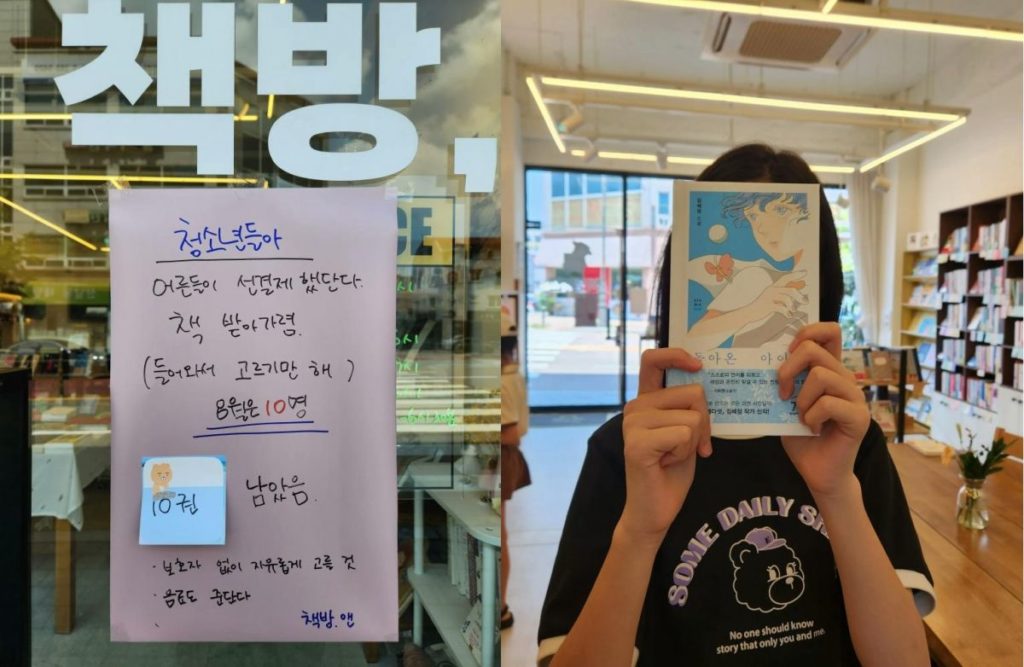 책방,
청소년들아
어른들이 선결제 했단다.
책 받아가렴.
(들어와서 고르기만 해)
8월은 10명
10권 남았음.
· 보호자 없이 자유롭게 고를 것
· 음료도 준단다
책방.앤
CE
돌아온 아이
SOME DAILY
No one should know
story that only you and me.